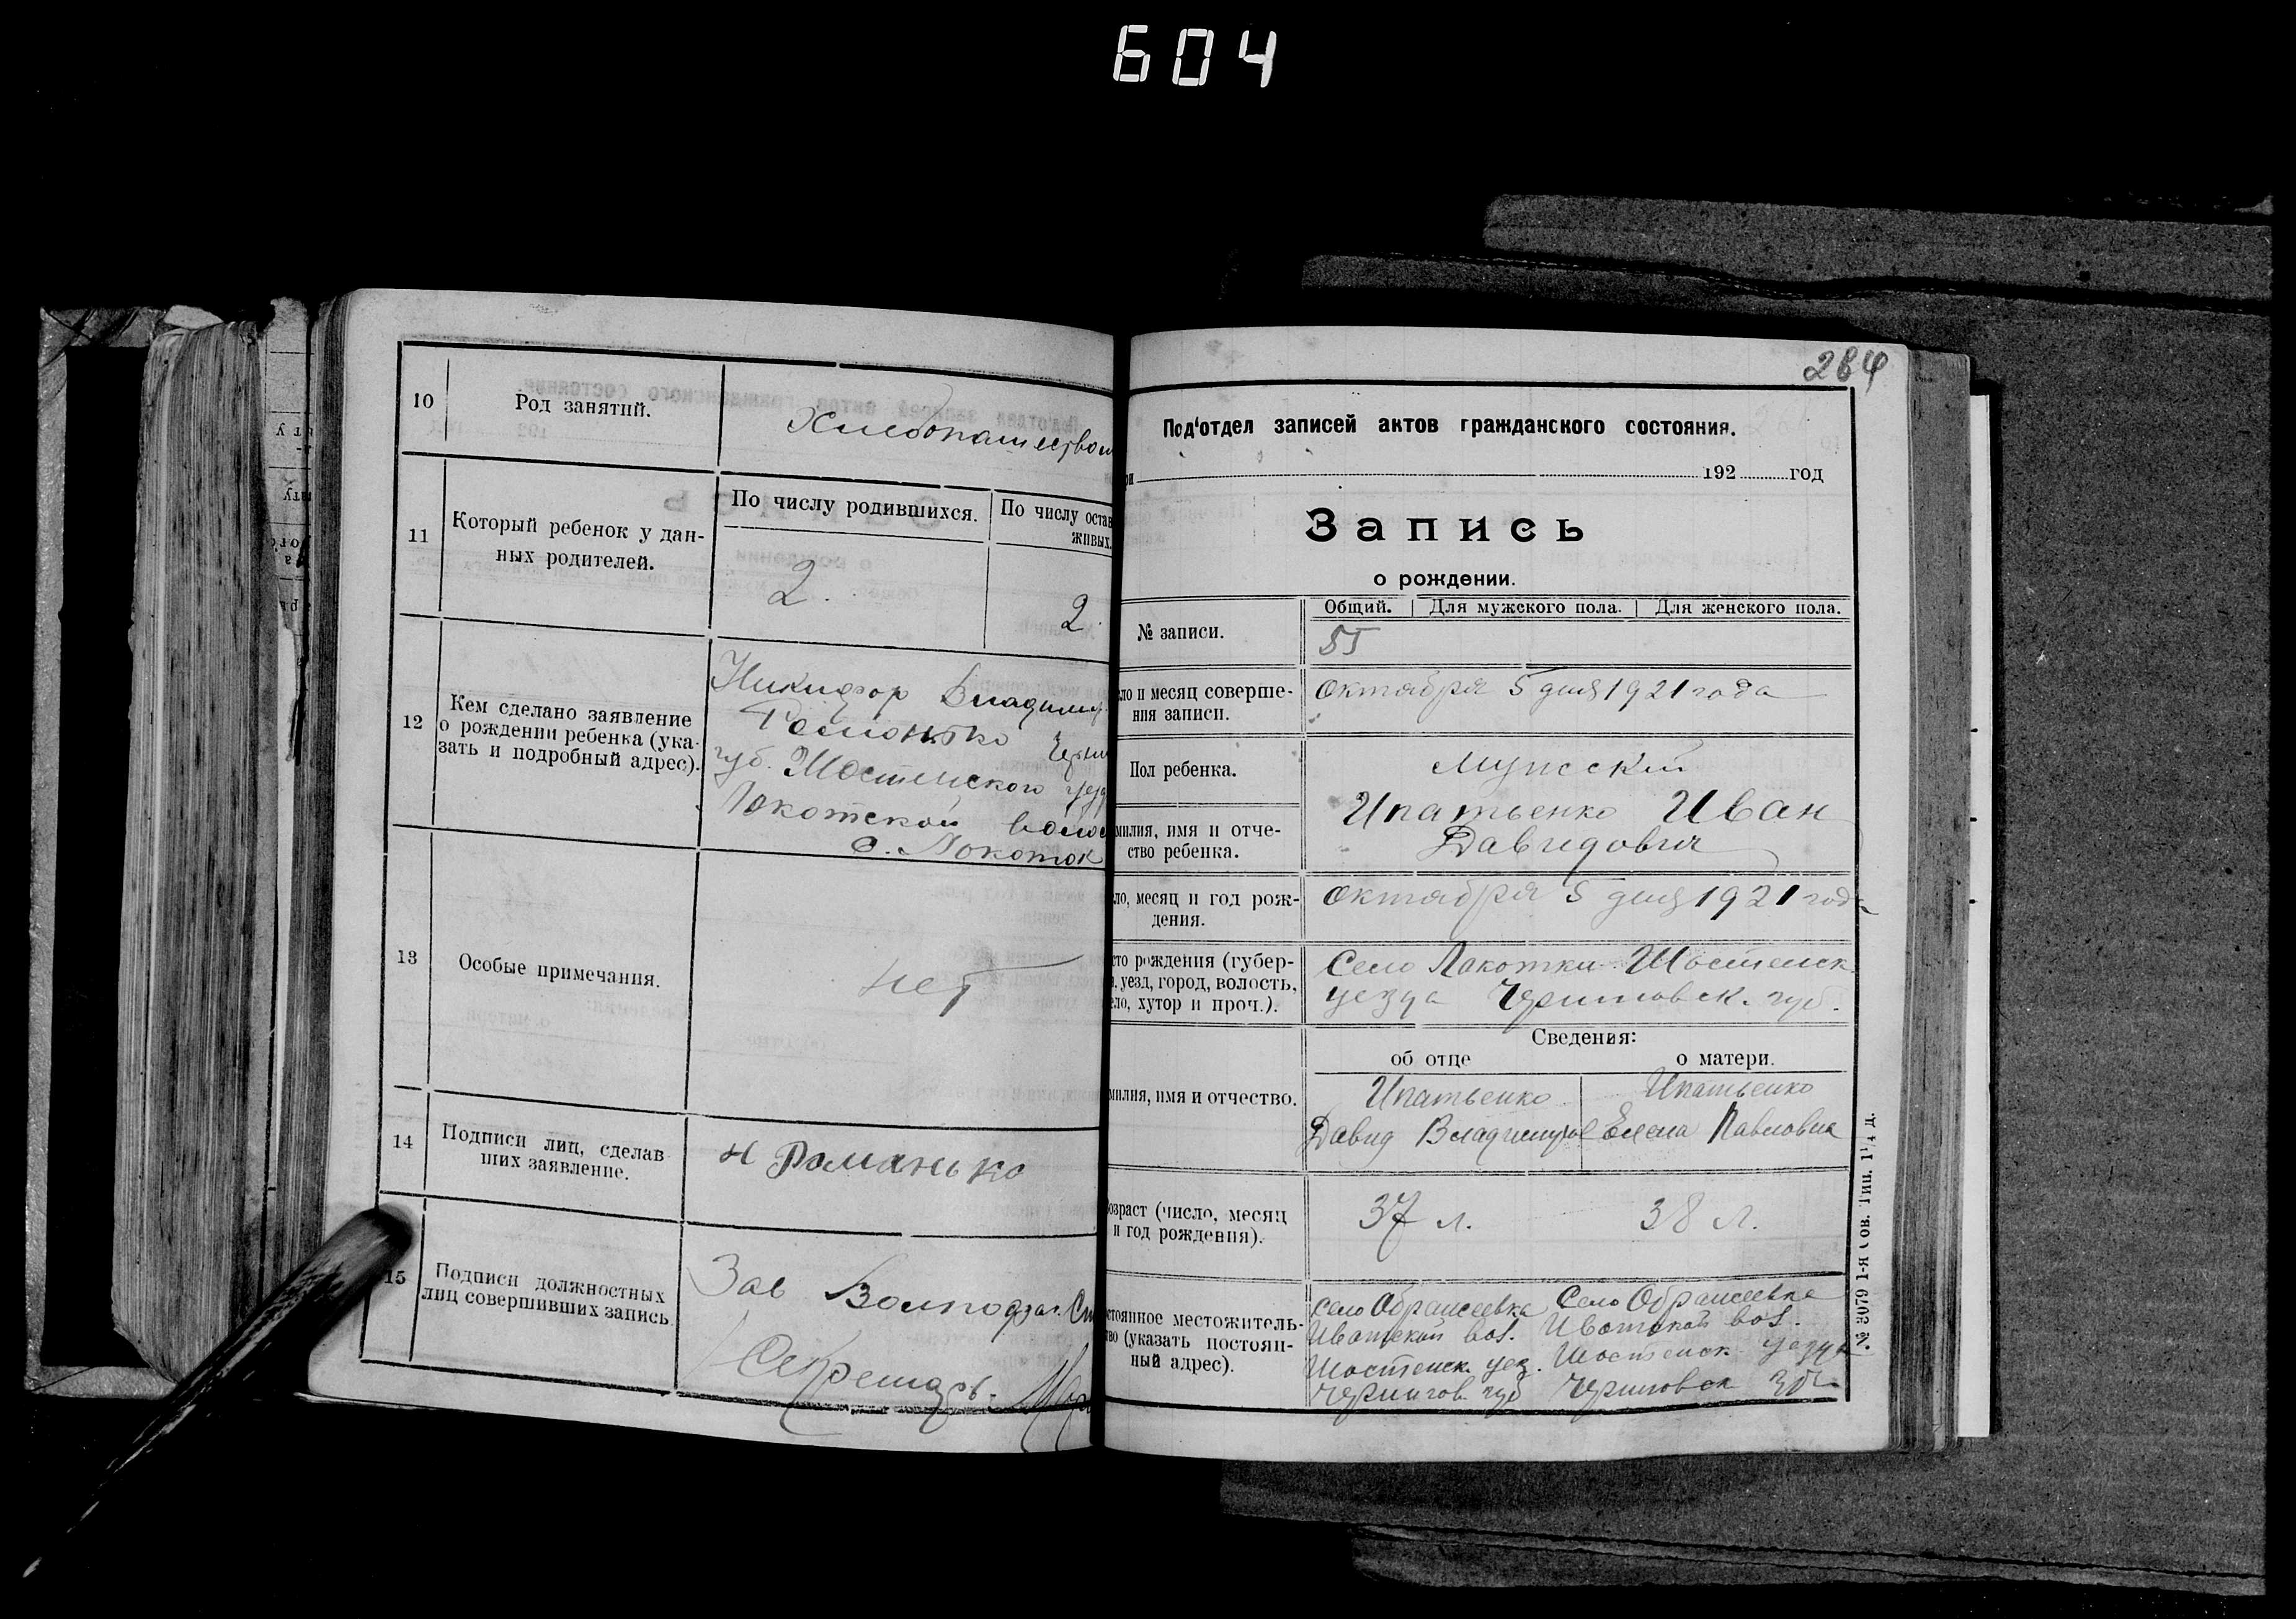 604
10
Род занятий.
Хлебопашеством
11
Который ребенок у дан-
ных родителей.
По числу родившихся.
По числу остав
живых.
2.
2.
12
Кем сделано заявление
о рождении ребенка (ука-
зать и подробный адрес).
Никифор Владимир.
Романько Черни
губ. Шостенского уезд
Локотской волос
с. Локоток
13
Особые примечания.
нет
14
Подписи лиц, сделав
ших заявление.
Н Романько
15
Подписи должностных
лиц совершивших запись
Зав
Секретарь.
284
Под‘отдел записей актов гражданского состояния.
ри 192 год
Запись
о рождении.
№ записи.
Общий. Для мужского пола. Для женского пола.
55
ло и месяц соверше-
ния записи.
Октября 5 дня 1921 года
Пол ребенка.
Мужской
милия, имя и отче-
ство ребенка.
Ипатьенко Иван
Давидович
ло, месяц и год рож-
дения.
Октября 5 дня 1921 года
сто рождения (губер-
, уезд, город, волость,
ело, хутор и проч.).
Село Локотки Шостенск.
уезда Черниговск. губ.
Сведения:
об отце о матери.
милия, имя и отчество.
Ипатьенко
Давид
Ипатьенко
Елена Павловна
озраст (число, месяц
и год рождения).
37 л.
38 л.
стоянное местожитель-
тво (указать постоян-
ный адрес).
Село
Ивотской вол.
Шостенск. уез.
Чернигов. губ
Село
Ивотской вол.
Шостенск уезда
№ 3079 1-я Сов. Тип. 1¼ д.